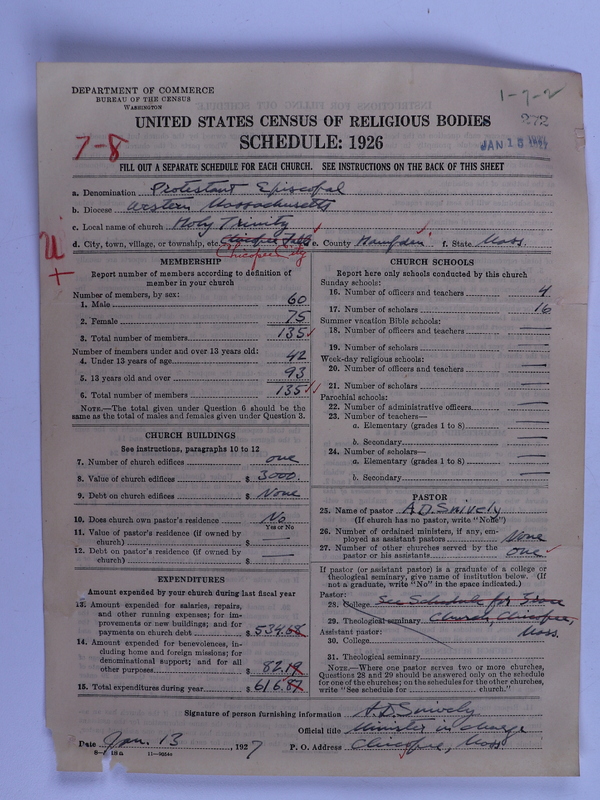 1-7-2
DEPARTMENT OF COMMERCE
BUREAU OF THE CENSUS
WASHINGTON
272
UNITED STATES CENSUS OF RELIGIOUS BODIES
7-8
JAN 18 1927
SCHEDULE: 1926
FILL OUT A SEPARATE SCHEDULE FOR EACH CHURCH. SEE INSTRUCTIONS ON THE BACK OF THIS SHEET
a. Denomination Protestant Episcopal
b. Diocese Western Massachusetts
c. Local name of church Holy Trinity
d. City, town, village, or township, etc Chicopee Falls e. County Hampden f. State Mass.
Chicopee City
U
+
MEMBERSHIP
Report number of members according to definition of
member in your church
Number of members, by sex:
1. Male 60
2. Female 75
3. Total number of members 135
Number of members under and over 13 years old:
4. Under 13 years of age 42
5. 13 years old and over 93
6. Total number of members 135
NOTE.—The total given under Question 6 should be
same as the total of males and females given under Question 3.
CHURCH BUILDINGS
See instructions, paragraphs 10 to 12
7. Number of church edifices one
8. Value of church edifices $ 3000.
9. Debt on church edifices $ None
10. Does church own pastor's residence No
Yes or No
11. Value of pastor's residence (if owned by
church) $ —
12. Debt on pastor's residence (if owned by
church) $ —
EXPENDITURES
Amount expended by your church during last fiscal year
13. Amount expended for salaries, repairs,
and other running expenses; for im-
provements or new buildings; and for
payments on church debt $ 534.68
14. Amount expended for benevolences, in-
cluding home and foreign missions; for
denominational support; and for all
other purposes $ 82.19
15. Total expenditures during year $ 616.87
CHURCH SCHOOLS
Report here only schools conducted by this church
Sunday schools:
16. Number of officers and teachers 4
17. Number of scholars 16
Summer vacation Bible schools:
18. Number of officers and teachers —
19. Number of scholars —
Week-day religious schools:
20. Number of officers and teachers —
21. Number of scholars —
Parochial schools:
22. Number of administrative officers —
23. Number of teachers—
a. Elementary (grades 1 to 8) —
b. Secondary —
24. Number of scholars—
a. Elementary (grades 1 to 8) —
b. Secondary —
PASTOR
25. Name of pastor A. D. Snively
(If church has no pastor, write "None")
26. Number of ordained ministers, if any, em-
ployed as assistant pastors None
27. Number of other churches served by the
pastor or his assistants one
If pastor (or assistant pastor) is a graduate of a college or
theological seminary, give name of institution below. (If
not a graduate, write "No" in the space indicated.)
Pastor:
28. College See Schedule for Grace
29. Theological seminary Church, Chicopee,
Assistant pastor: Mass.
30. College
31. Theological seminary
NOTE.—Where one pastor serves two or more churches,
Questions 28 and 29 should be answered only on the schedule
for one of the churches; on the schedules for the other churches,
write "See schedule for church."
Signature of person furnishing information A. D. Snively
Official title Minister in charge
Date Jan. 13 1927 P. O. Address Chicopee, Mass